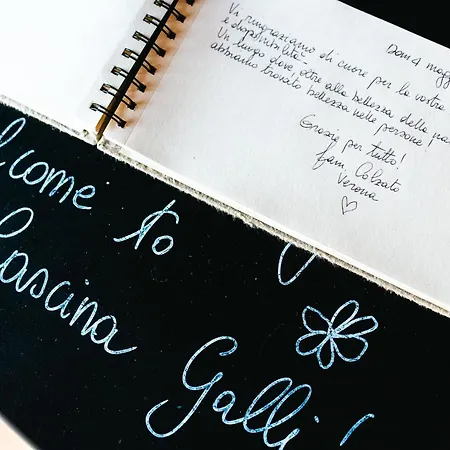 Dom 4 magg
Vi ringraziamo di cuore per la vostra
e disponibilità
Un luogo dove oltre alla bellezza della pa
abbiamo trovato bellezza nelle persone!
Grazie per tutto!
fam. Colzato
Verona
lcome to
Cascina
Galli!